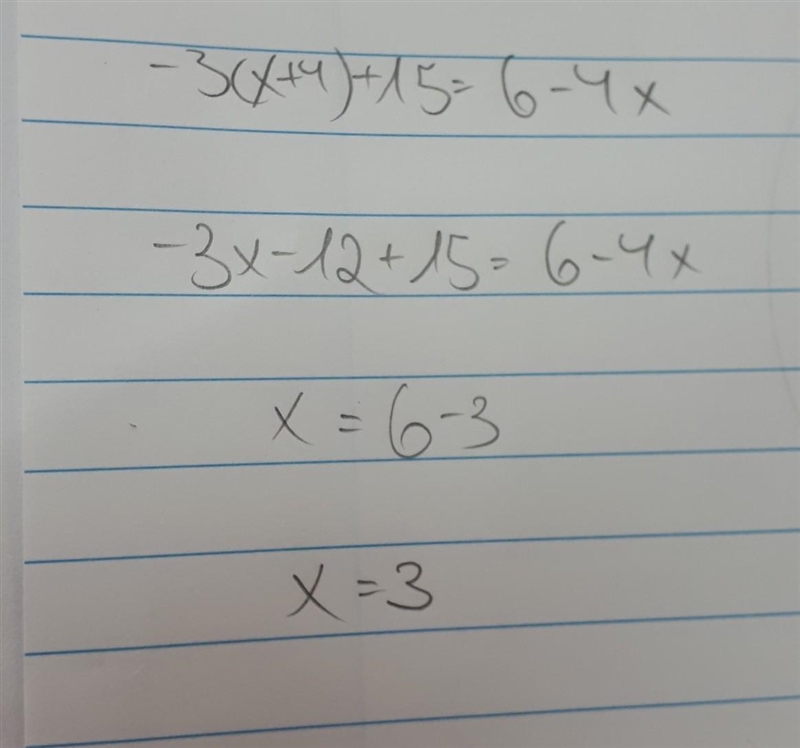 -3(x+4)+15=6-4x
-3x-12+15=6-4x
x=6-3
x=3